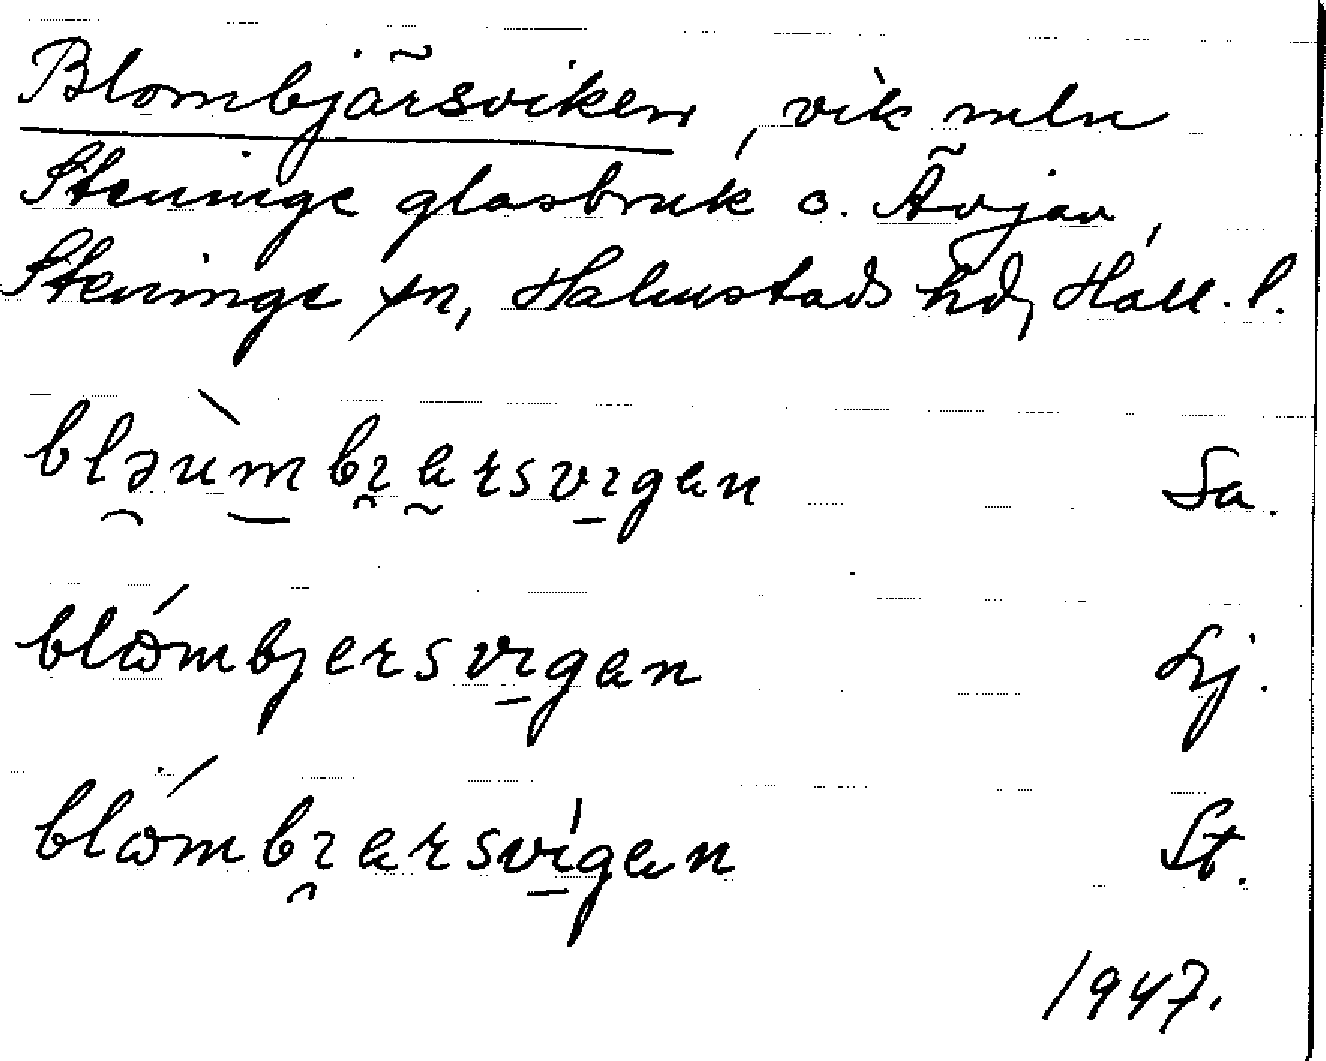 Blombjärsviken, vik mln
Steninge glasbruk o. Ävjan,
Steninge sn, Halmstads hd, Hall. l.
bləu̇̀m bı̯ærsvıgen Sa.
blɷ́mbjersvıgen Lj.
blɷ́mbı̯ærsvı́gen St.
1947.